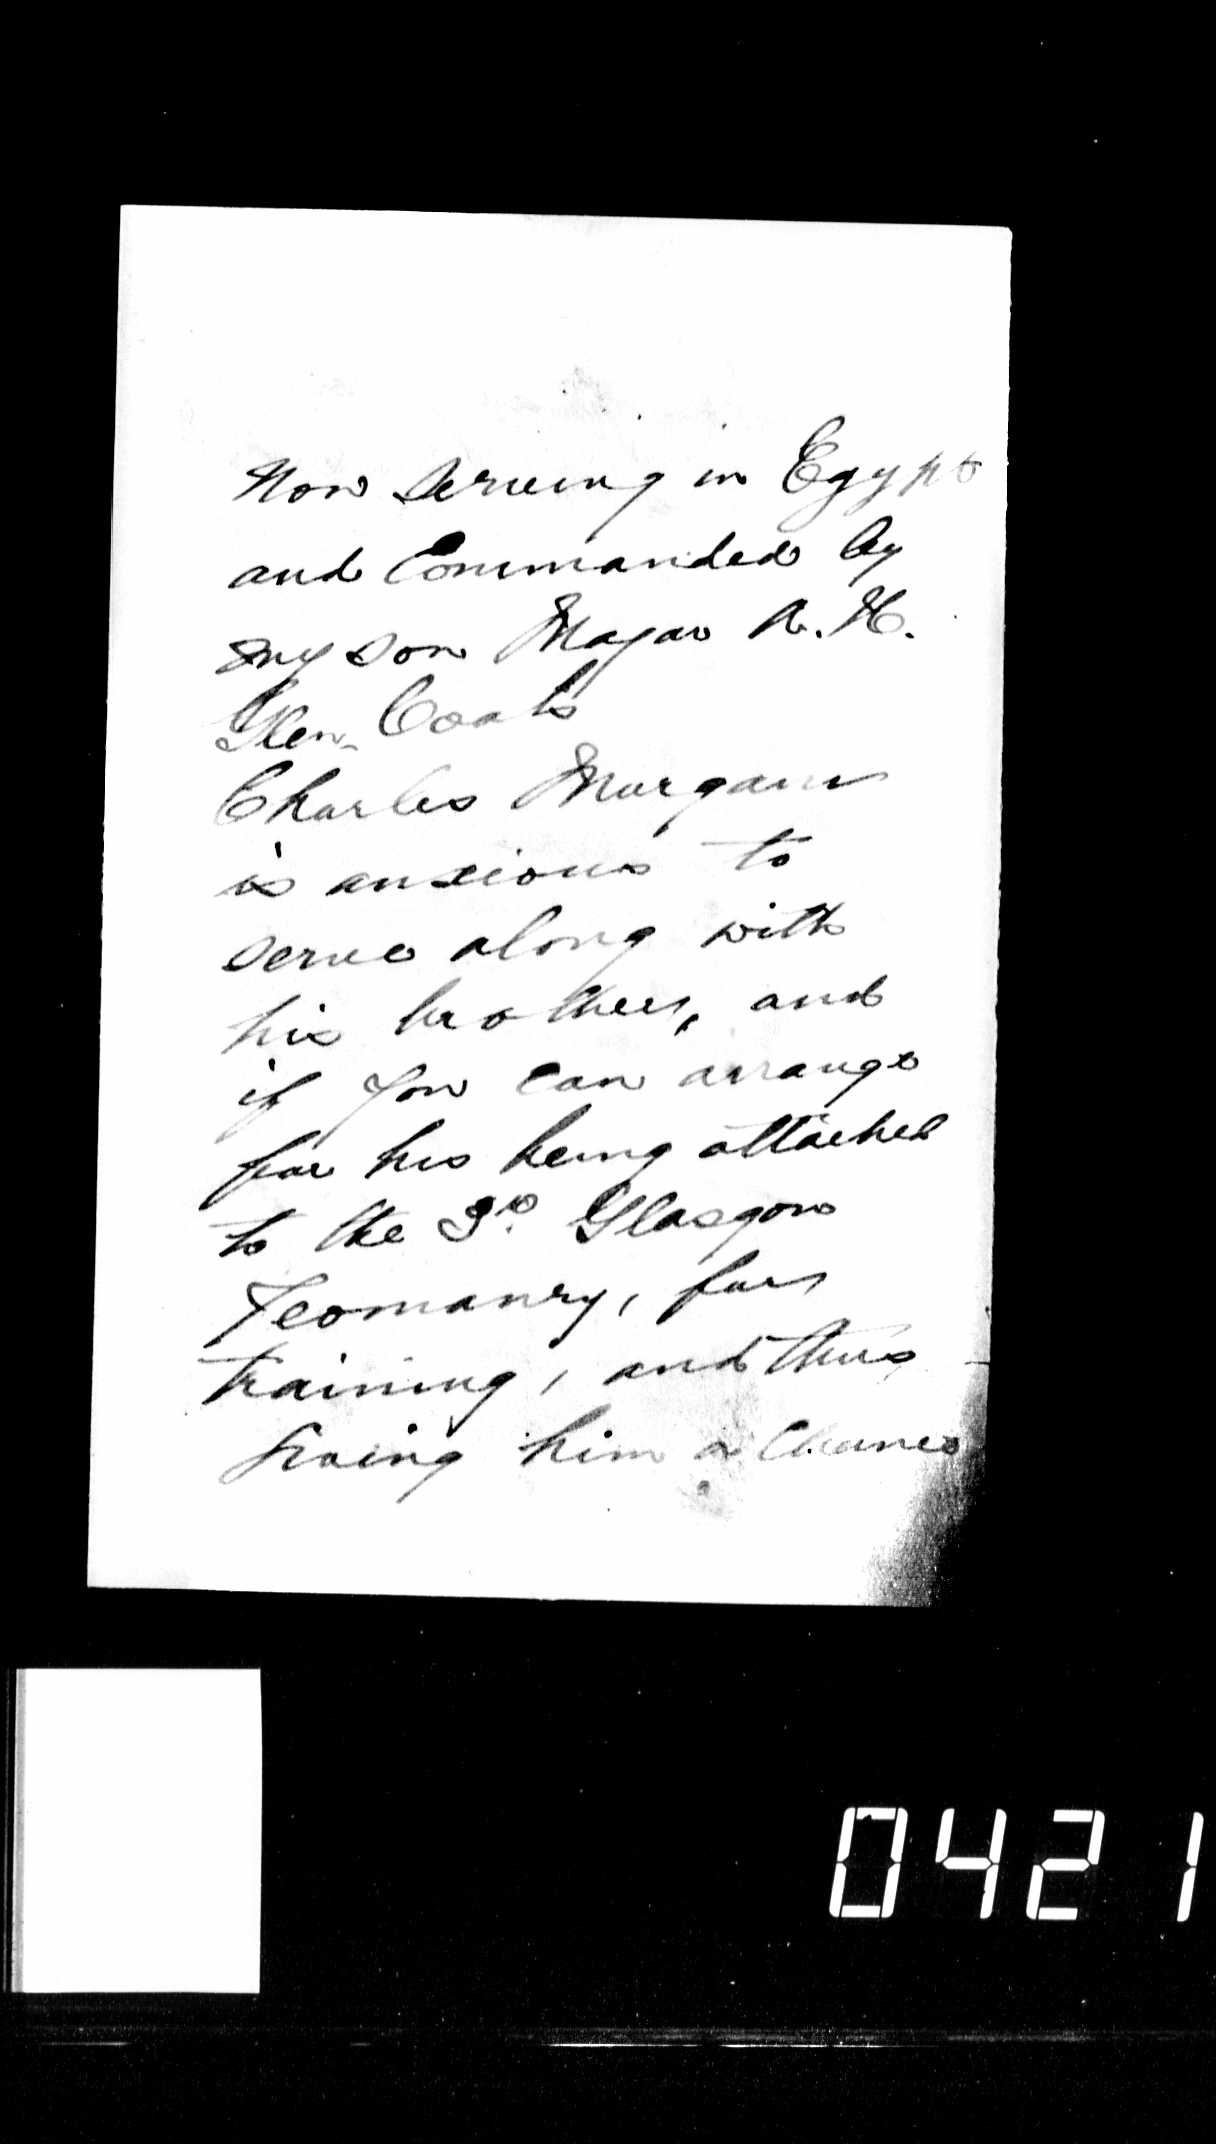 now serving in Egypt
and Commanded by
my son Major A. H.
Glen-Coats
Charles Morgan
is anxious to
serve along with
his brother, and
if you can arrange
for his being attached
to the 3rd. Glasgow
Yeomanry, for
training, and thus
giving him a Chance
0421